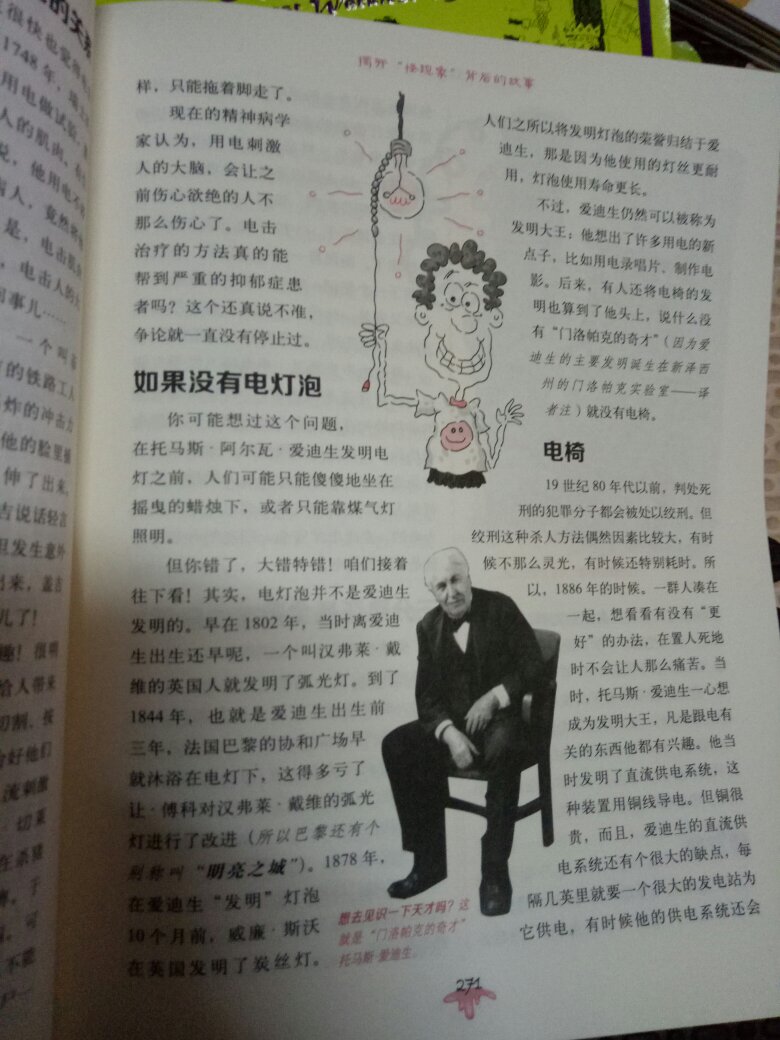 揭开“怪现象”背后的故事
样，只能拖着脚走了。
现在的精神病学
家认为，用电刺激
人的大脑，会让之
前伤心欲绝的人不
那么伤心了。电击
治疗的方法真的能
帮到严重的抑郁症患
者吗？这个还真说不准，
争论就一直没有停止过。
如果没有电灯泡
你可能想过这个问题，
在托马斯·阿尔瓦·爱迪生发明电
灯之前，人们可能只能傻傻地坐在
摇曳的蜡烛下，或者只能靠煤气灯
照明。
但你错了，大错特错！咱们接着
往下看！其实，电灯泡并不是爱迪生
发明的。早在1802年，当时离爱迪
生出生还早呢，一个叫汉弗莱·戴
维的英国人就发明了弧光灯。到了
1844年，也就是爱迪生出生前
三年，法国巴黎的协和广场早
就沐浴在电灯下，这得多亏了
让·傅科对汉弗莱·戴维的弧光
灯进行了改进（所以巴黎还有个
别称叫“明亮之城”）。1878年，
在爱迪生“发明”灯泡
10个月前，威廉·斯沃
在英国发明了炭丝灯。
想去见识一下天才吗？这
就是“门洛帕克的奇才”
托马斯·爱迪生。
人们之所以将发明灯泡的荣誉归结于爱
迪生，那是因为他使用的灯丝更耐
用，灯泡使用寿命更长。
不过，爱迪生仍然可以被称为
发明大王：他想出了许多用电的新
点子，比如用电录唱片、制作电
影。后来，有人还将电椅的发
明也算到了他头上，说什么没
有“门洛帕克的奇才”（因为爱
迪生的主要发明诞生在新泽西
州的门洛帕克实验室——译
者注）就没有电椅。
电椅
19世纪80年代以前，判处死
刑的犯罪分子都会被处以绞刑。但
绞刑这种杀人方法偶然因素比较大，有时
候不那么灵光，有时候还特别耗时。所
以，1886年的时候。一群人凑在
一起，想看看有没有“更
好”的办法，在置人死地
时不会让人那么痛苦。当
时，托马斯·爱迪生一心想
成为发明大王，凡是跟电有
关的东西他都有兴趣。他当
时发明了直流供电系统，这
种装置用铜线导电。但铜很
贵，而且，爱迪生的直流供
电系统还有个很大的缺点，每
隔几英里就要一个很大的发电站为
它供电，有时候他的供电系统还会
271